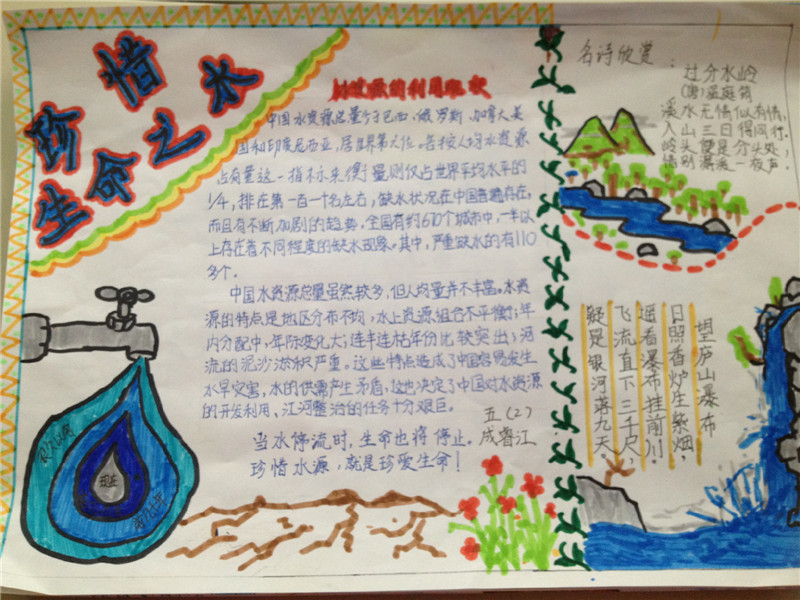 珍惜
生命之水
资源的利用现状
中国水资源总量少于巴西、俄罗斯、加拿大、美
国和印度尼西亚,居世界第六位。若按人均水资源
占有量这一指标来衡量则仅占世界平均水平的
1/4,排在第一百一十名左右,缺水状况在中国普遍存在,
而且有不断加剧的趋势。全国有约670个城市中,一半以
上存在着不同程度的缺水现象。其中,严重缺水的有110
多个。
中国水资源总量虽然较多,但人均量并不丰富。水资
源的特点是地区分布不均,水土资源组合不平衡;年
内分配中,年际变化大;连丰连枯年份比较突出;河
流的泥沙淤积严重。这些特点造成了中国容易发生
水旱灾害,水的供需产生矛盾,这也决定了中国对水资源
的开发利用、江河整治的任务十分艰巨。
当水停流时,生命也将停止。
珍惜水源,就是珍爱生命!
五(2)
成睿江
现在
名诗欣赏:
过分水岭
(唐)温庭筠
溪水无情似有情,
入山三日得同行。
岭头便是分头处,
惜别潺湲一夜声。
望庐山瀑布
日照香炉生紫烟,
遥看瀑布挂前川。
飞流直下三千尺,
疑是银河落九天。